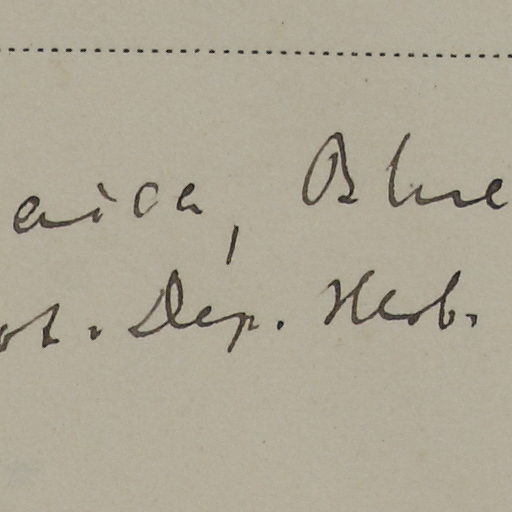 aica, Blue
ot. Dep. Herb.